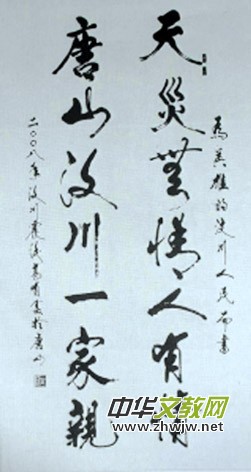 爲英雄的汶川人民而書
天災無情人有情
唐山汶川一家親
二〇〇八年汶川震後於唐山
中华文教网
www.zhwjw.net